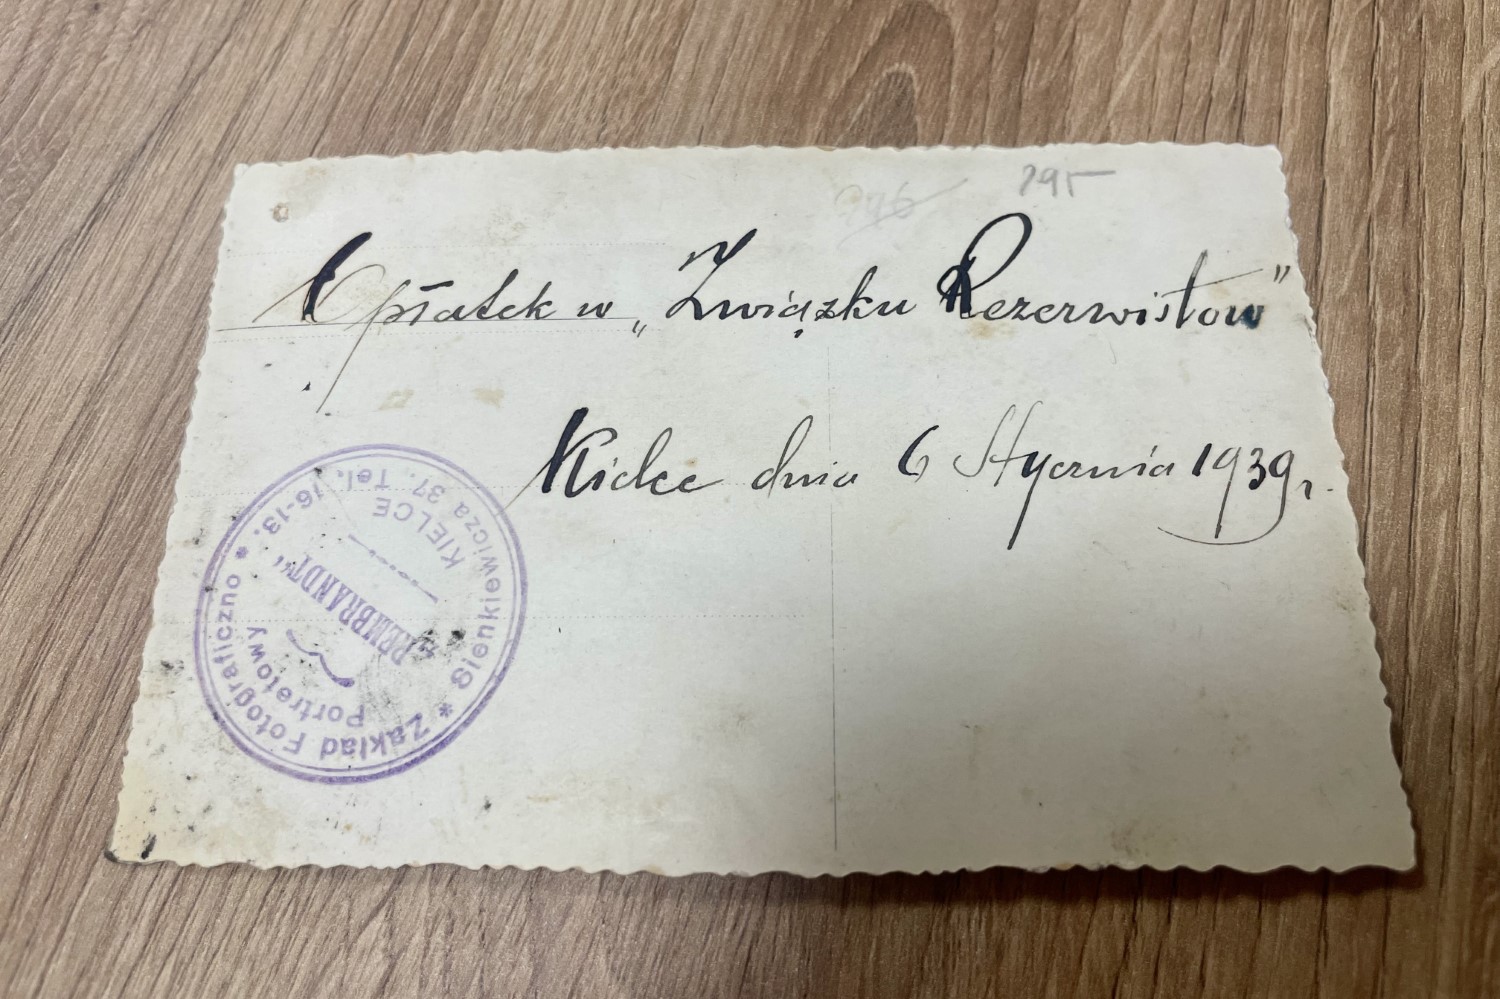 295
Opłatek w „Związku Rezerwistow"
Kielce dnia 6 Stycznia 1939 r.
* Zakład Fotograficzno *
Portretowy
„REMBRANDT"
KIELCE
Sienkiewicza 37. Tel. 16-13.